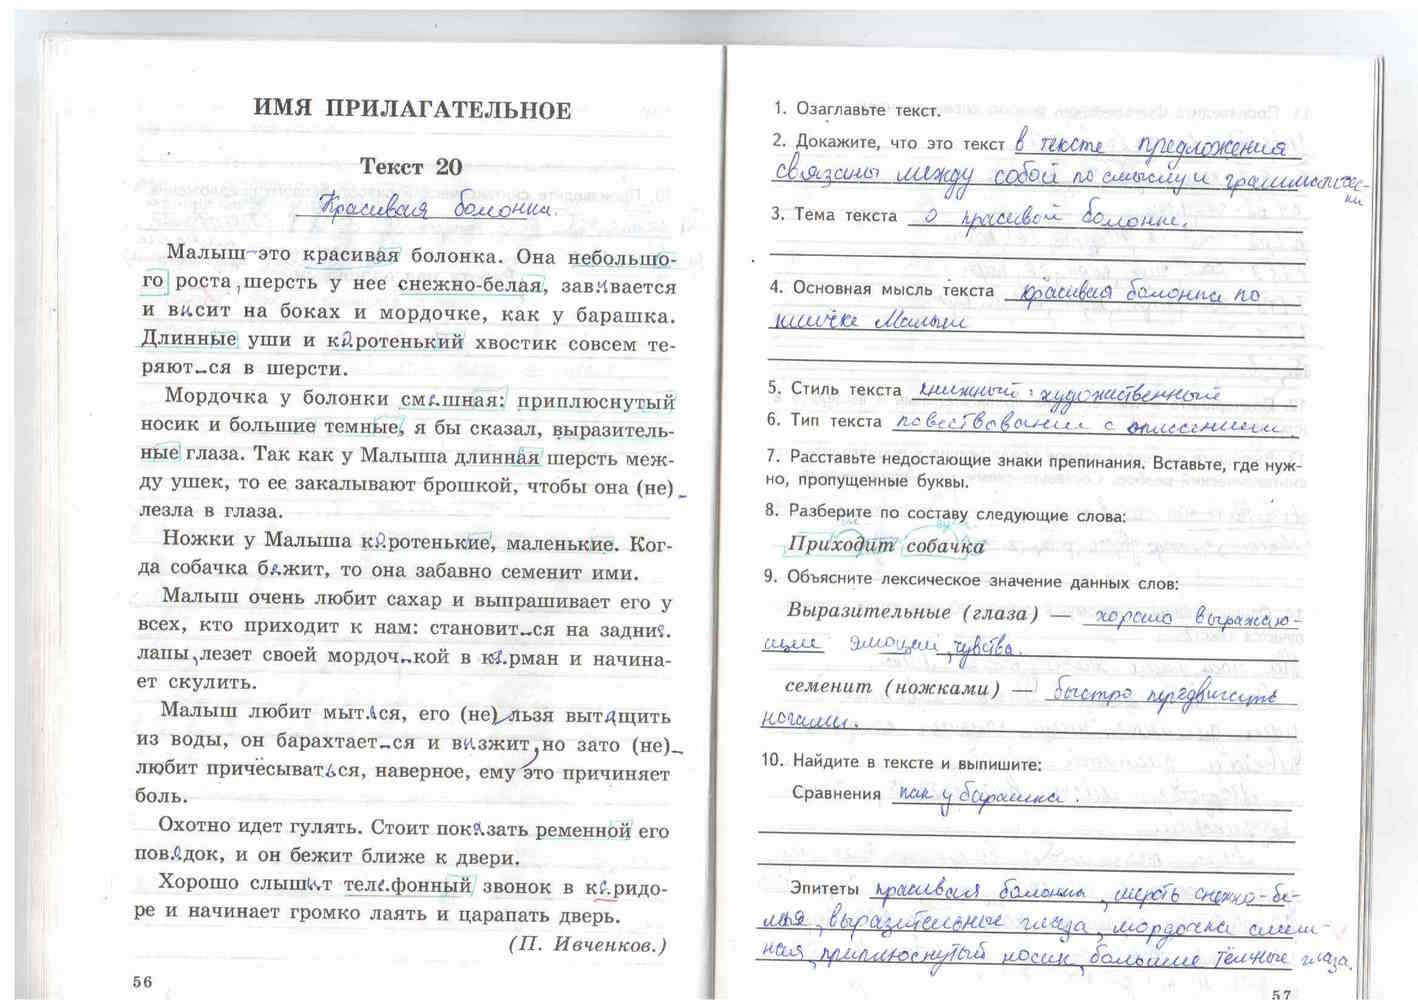 ИМЯ ПРИЛАГАТЕЛЬНОЕ
Текст 20
Красивая болонка.
Малыш-это красивая болонка. Она небольшо-
го роста, шерсть у нее снежно-белая, завивается
и висит на боках и мордочке, как у барашка.
Длинные уши и коротенький хвостик совсем те-
ряют-ся в шерсти.
Мордочка у болонки смешная: приплюснутый
носик и большие темные, я бы сказал, выразитель-
ные глаза. Так как у Малыша длинная шерсть меж-
ду ушек, то ее закалывают брошкой, чтобы она (не)
лезла в глаза.
Ножки у Малыша коротенькие, маленькие. Ког-
да собачка бежит, то она забавно семенит ими.
Малыш очень любит сахар и выпрашивает его у
всех, кто приходит к нам: становит-ся на задние
лапы, лезет своей мордоч-кой в карман и начина-
ет скулить.
Малыш любит мыться, его (не)льзя вытащить
из воды, он барахтает-ся и визжит, но зато (не)
любит причёсываться, наверное, ему это причиняет
боль.
Охотно идет гулять. Стоит показать ременной его
поводок, и он бежит ближе к двери.
Хорошо слышит телефонный звонок в коридо-
ре и начинает громко лаять и царапать дверь.
(П. Ивченков.)
56
1. Озаглавьте текст.
2. Докажите, что это текст в тексте предложения
связаны между собой по смыслу и грамматичес-
ки
3. Тема текста о красивой болонке.
4. Основная мысль текста красивая болонка по
кличке Малыш
5. Стиль текста книжный: художественный
6. Тип текста повествование с описанием.
7. Расставьте недостающие знаки препинания. Вставьте, где нуж-
но, пропущенные буквы.
8. Разберите по составу следующие слова:
Приходит собачка
9. Объясните лексическое значение данных слов:
Выразительные (глаза) — хорошо выражаю-
щие эмоции, чувства.
семенит (ножками) — быстро передвигать
ногами.
10. Найдите в тексте и выпишите:
Сравнения как у барашка.
Эпитеты красивая болонка, шерсть снежно-бе-
лая, выразительные глаза, мордочка смеш-
ная, приплюснутый носик, большие тёмные глаза.
57